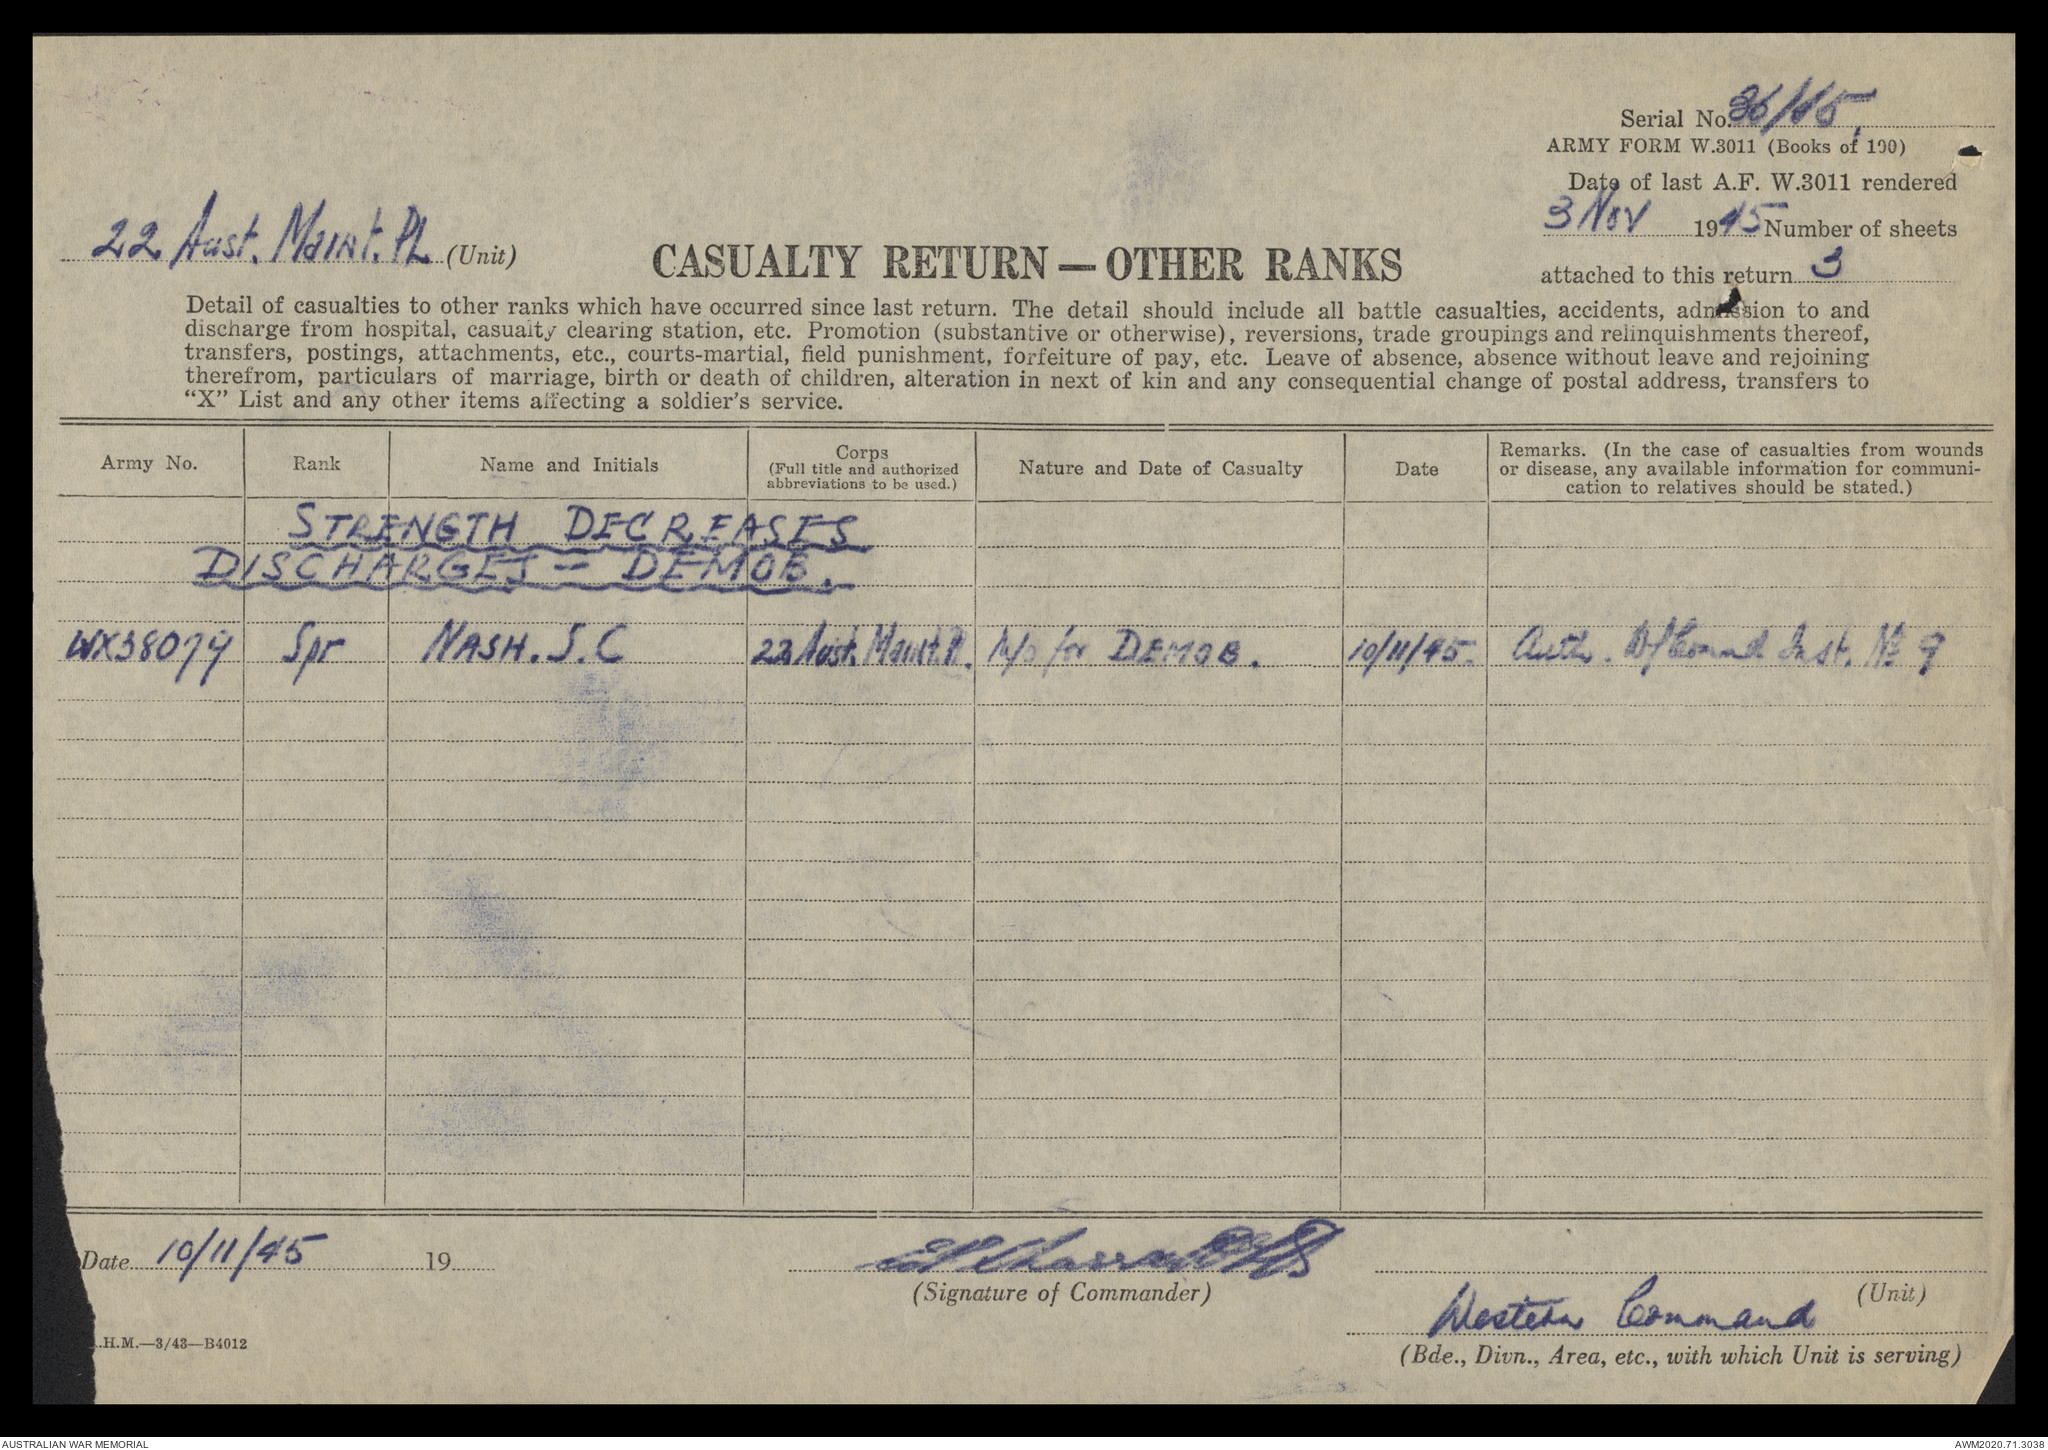 Serial No. 36/45.
ARMY FORM W.3011 (Books of 100)
Date of last A.F. W.3011 rendered
3 Nov 1945 Number of sheets
attached to this return 3
22 Aust. Maint. Pl. (Unit)
CASUALTY RETURN — OTHER RANKS
Detail of casualties to other ranks which have occurred since last return. The detail should include all battle casualties, accidents, admission to and
discharge from hospital, casualty clearing station, etc. Promotion (substantive or otherwise), reversions, trade groupings and relinquishments thereof,
transfers, postings, attachments, etc., courts-martial, field punishment, forfeiture of pay, etc. Leave of absence, absence without leave and rejoining
therefrom, particulars of marriage, birth or death of children, alteration in next of kin and any consequential change of postal address, transfers to
“X” List and any other items affecting a soldier’s service.
Army No.
Rank
Name and Initials
Corps
(Full title and authorized
abbreviations to be used.)
Nature and Date of Casualty
Date
Remarks. (In the case of casualties from wounds
or disease, any available information for communi-
cation to relatives should be stated.)
STRENGTH DECREASES
DISCHARGES – DEMOB.
WX38079 Spr NASH. S.C 22 Aust. Maint. Pl. M/o for DEMOB. 10/11/45. Auth. Inst. No 9
Date 10/11/45 19
(Signature of Commander)
(Unit)
Western Command
(Bde., Divn., Area, etc., with which Unit is serving)
.H.M.—3/43—B4012
AUSTRALIAN WAR MEMORIAL
AWM2020.71.3038